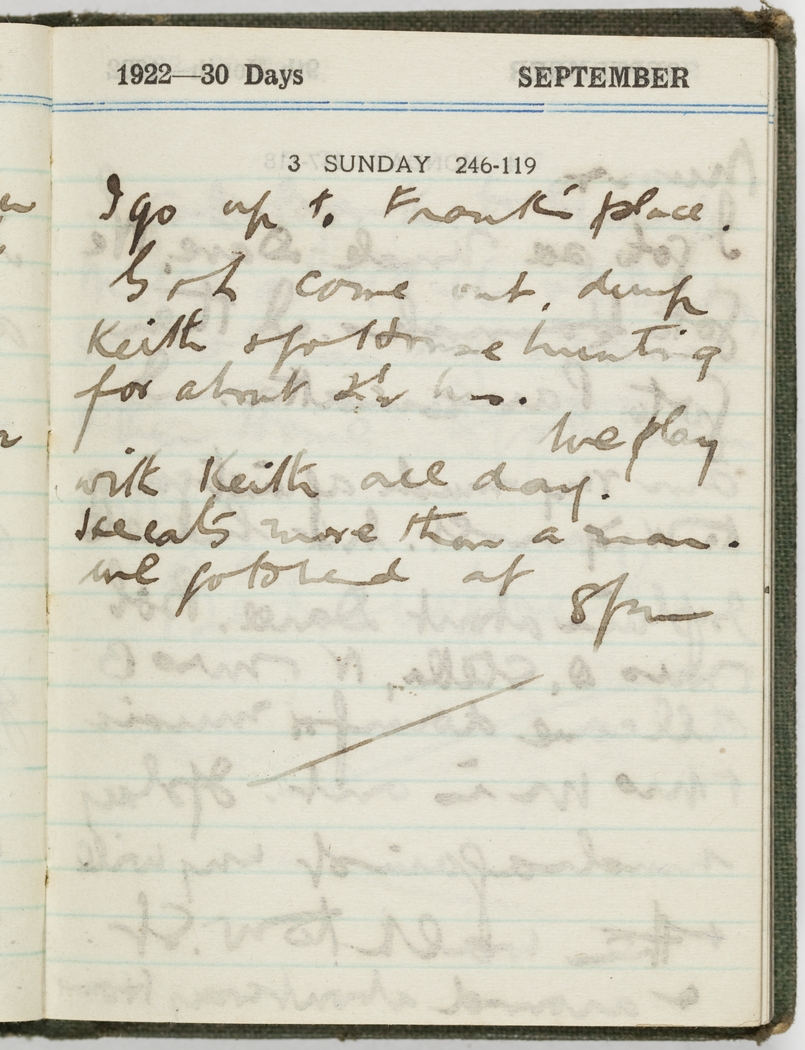 1922—30 Days SEPTEMBER
3 SUNDAY 246-119
I go up to Frank's place.
Bob come out, dump
Keith & go House hunting
for about 2½ hrs.
We play
with Keith all day.
He eats more than a man.
we go to bed at
8 pm